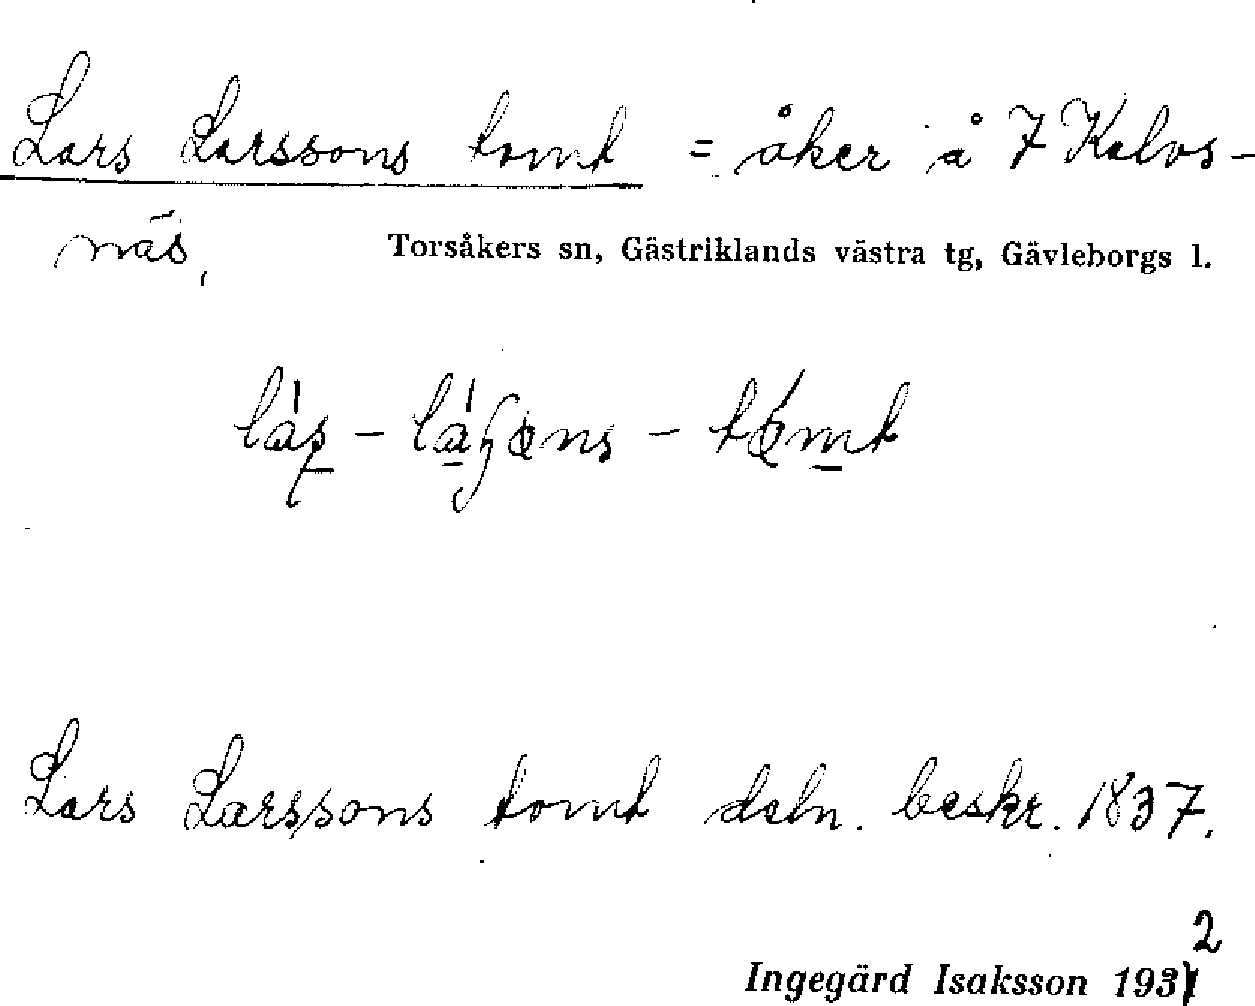 Lars Larssons tomt = åker å 7 Kalvs-
näs,
Torsåkers sn, Gästriklands västra tg, Gävleborgs l.
Lars Larssons tomt dsln. beskr. 1837.
2
Ingegärd Isaksson 1931